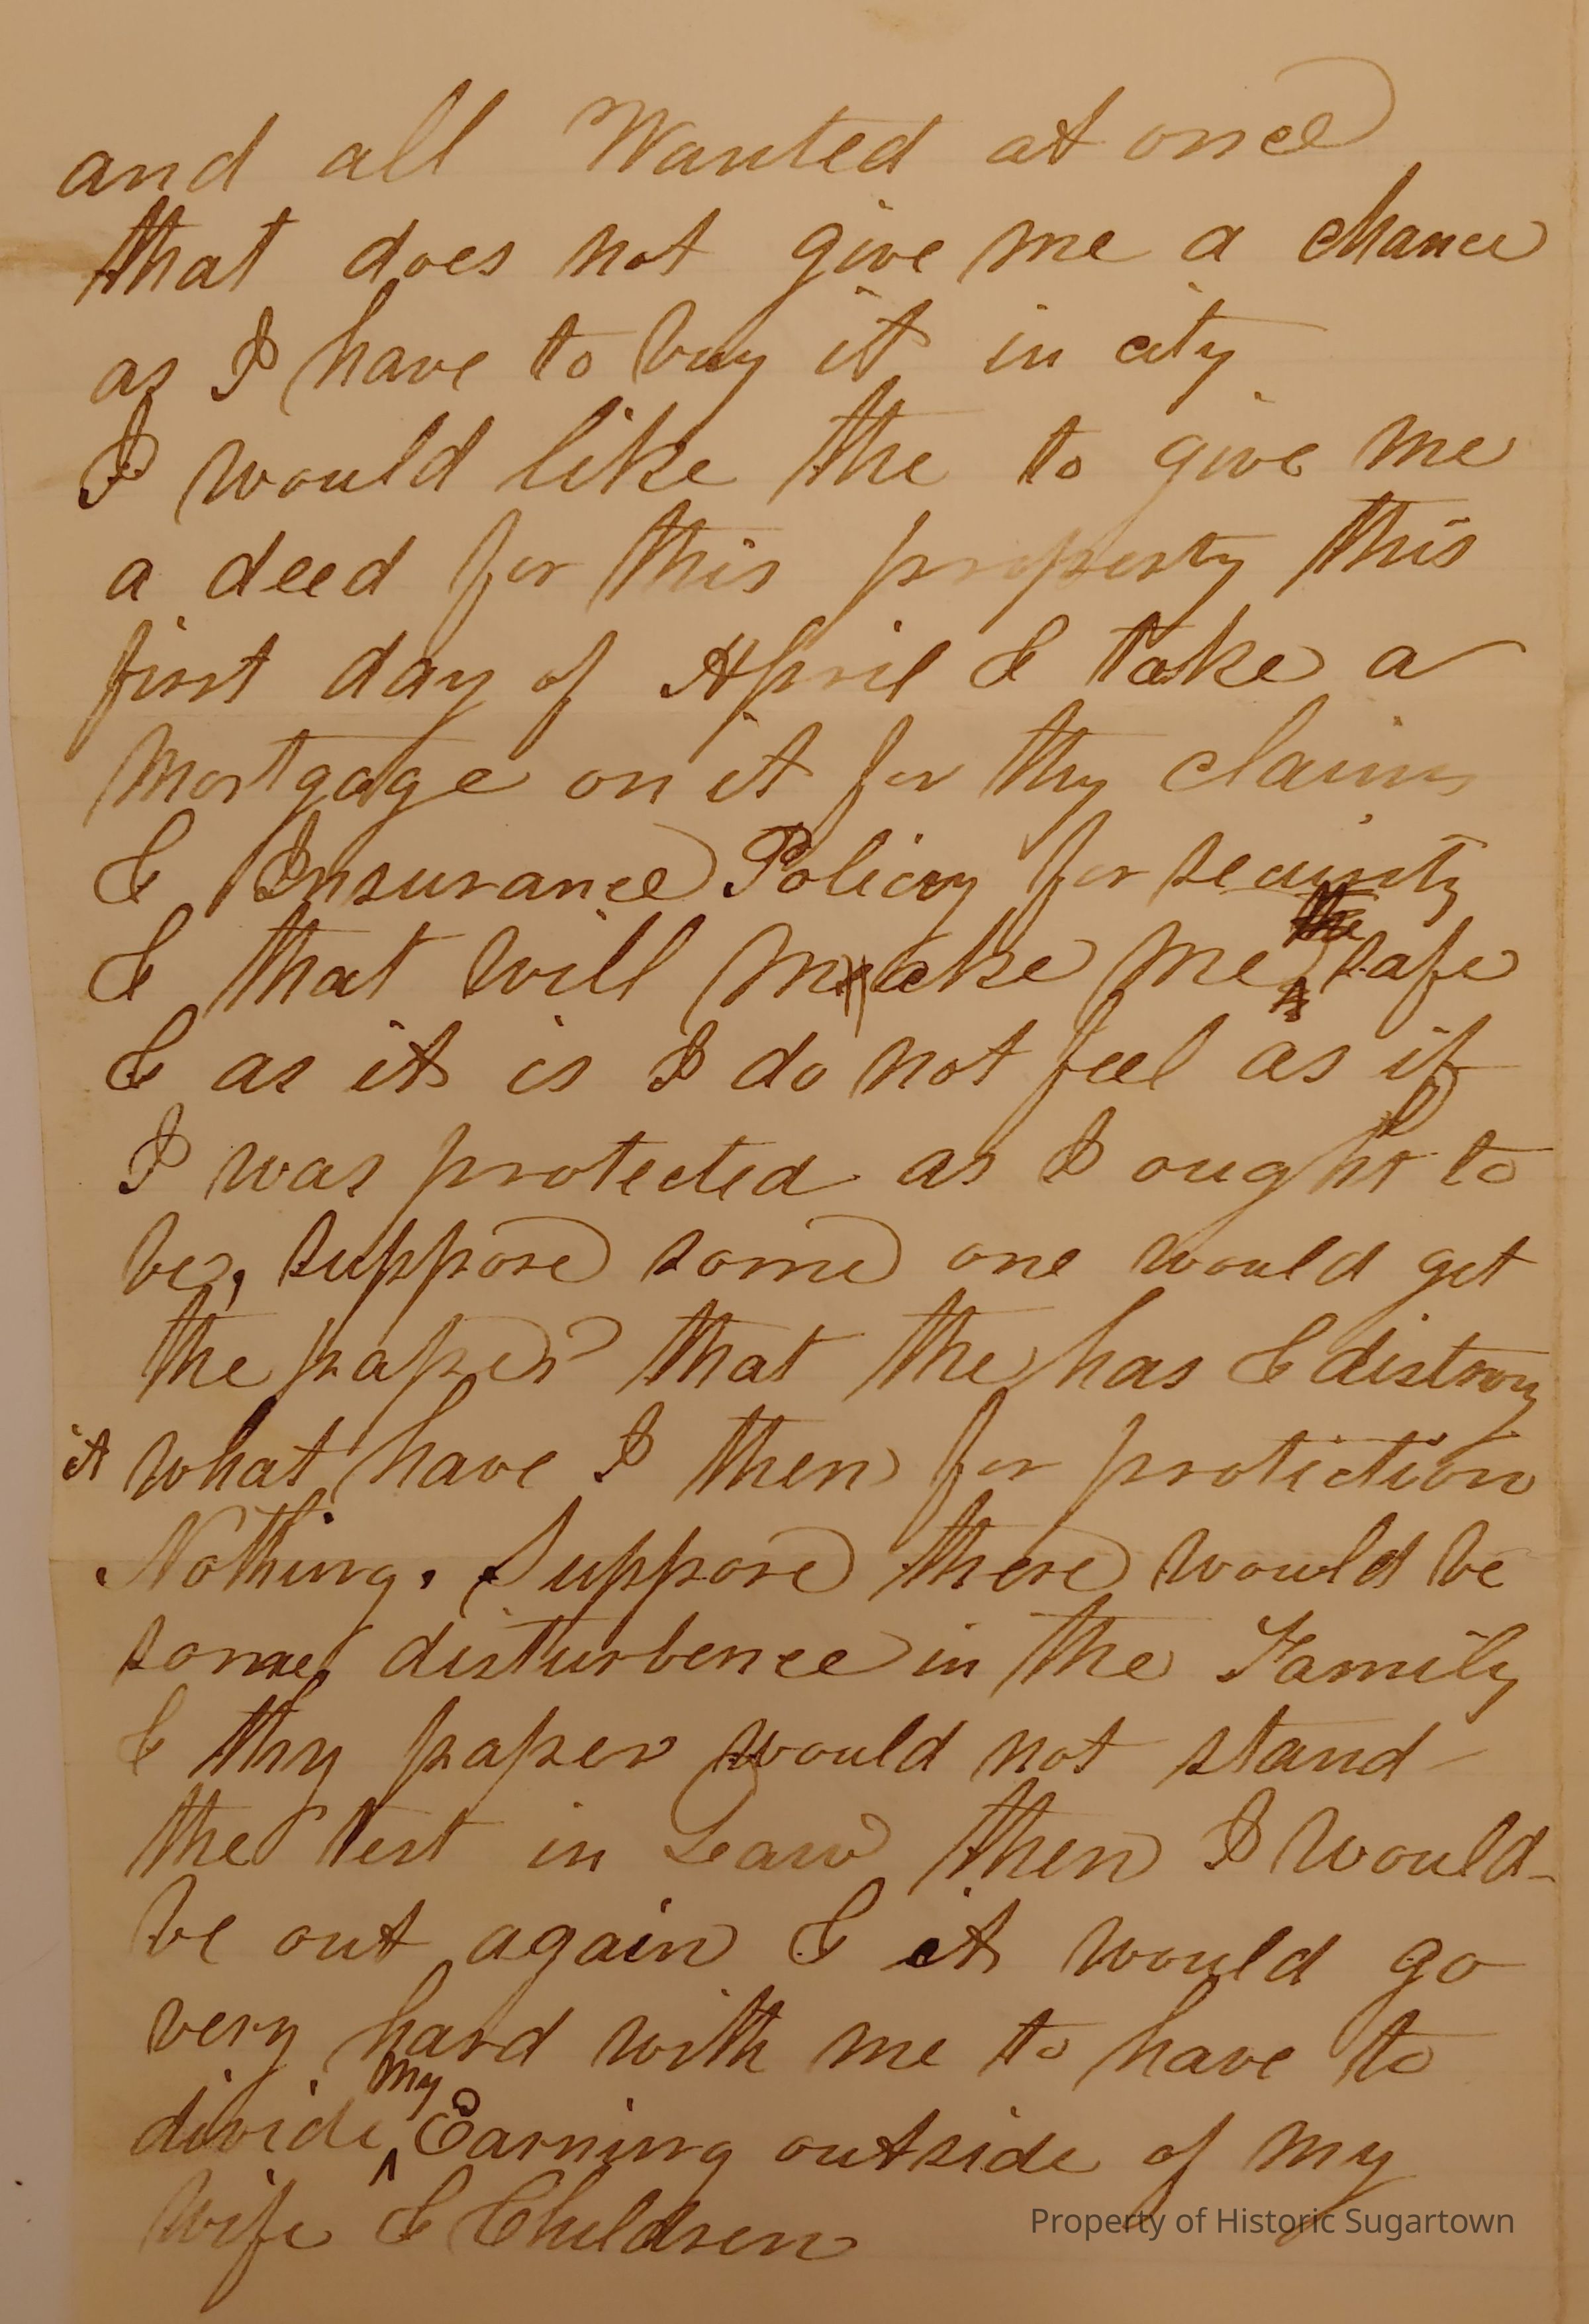 and all Wanted at once
that does not give me a chance
as I have to buy it in city
I would like the to give me
a deed for this property this
first day of April & take a
Mortgage on it for thy claim
& Insurance Policy for security
& that will make me safe
& as it is I do not feel as if
I was protected as I ought to
be, suppose some one would get
the paper that the has & distroy
it what have I then for protiction
Nothing. Suppose there would be
some disturbence in the Family
& thy paper would not stand
the test in Law then I would
be out again & it would go
very hard with me to have to
divide my Earning outside of my
wife & Children
Property of Historic Sugartown